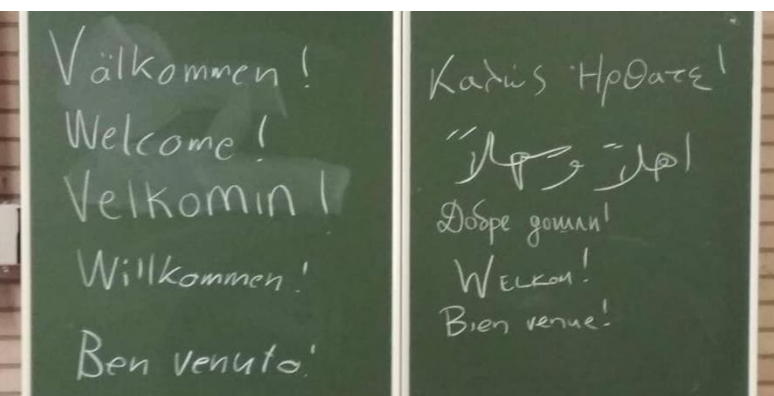 Välkommen!
Welcome!
Velkomin!
Willkommen!
Ben venuto!
Καλώς Ήρθατε!
اهلاً وسهلاً
Добре дошли!
WELKOM!
Bien venue!